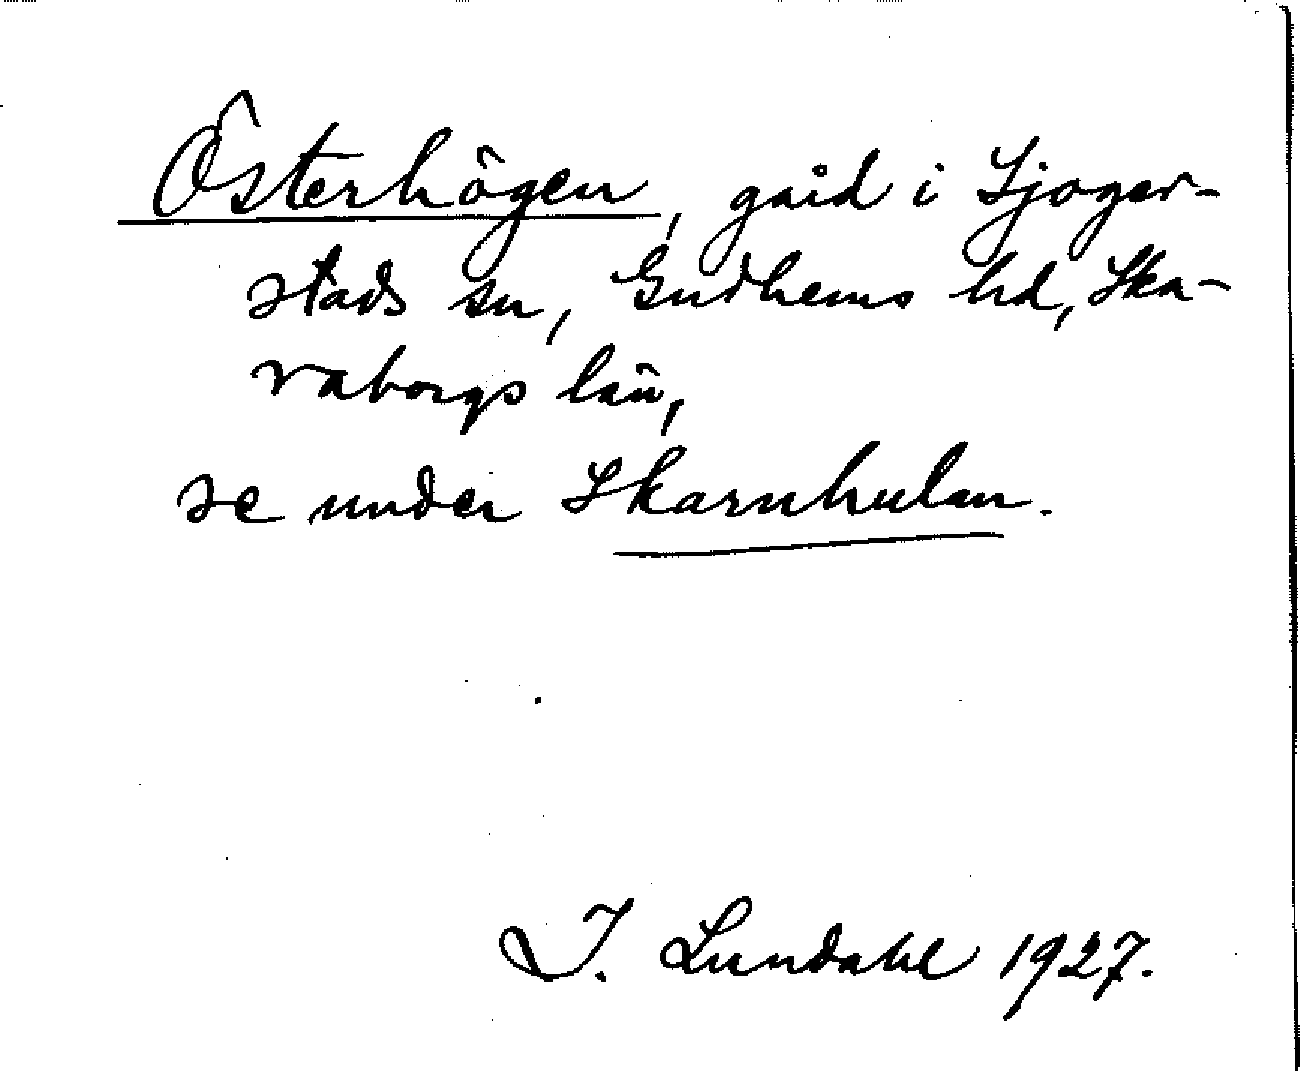 Österhögen, gård i Sjoger-
stads sn, Gudhems hd, Ska-
raborgs län,
se under Skarnhulan.
I. Lundahl 1927.